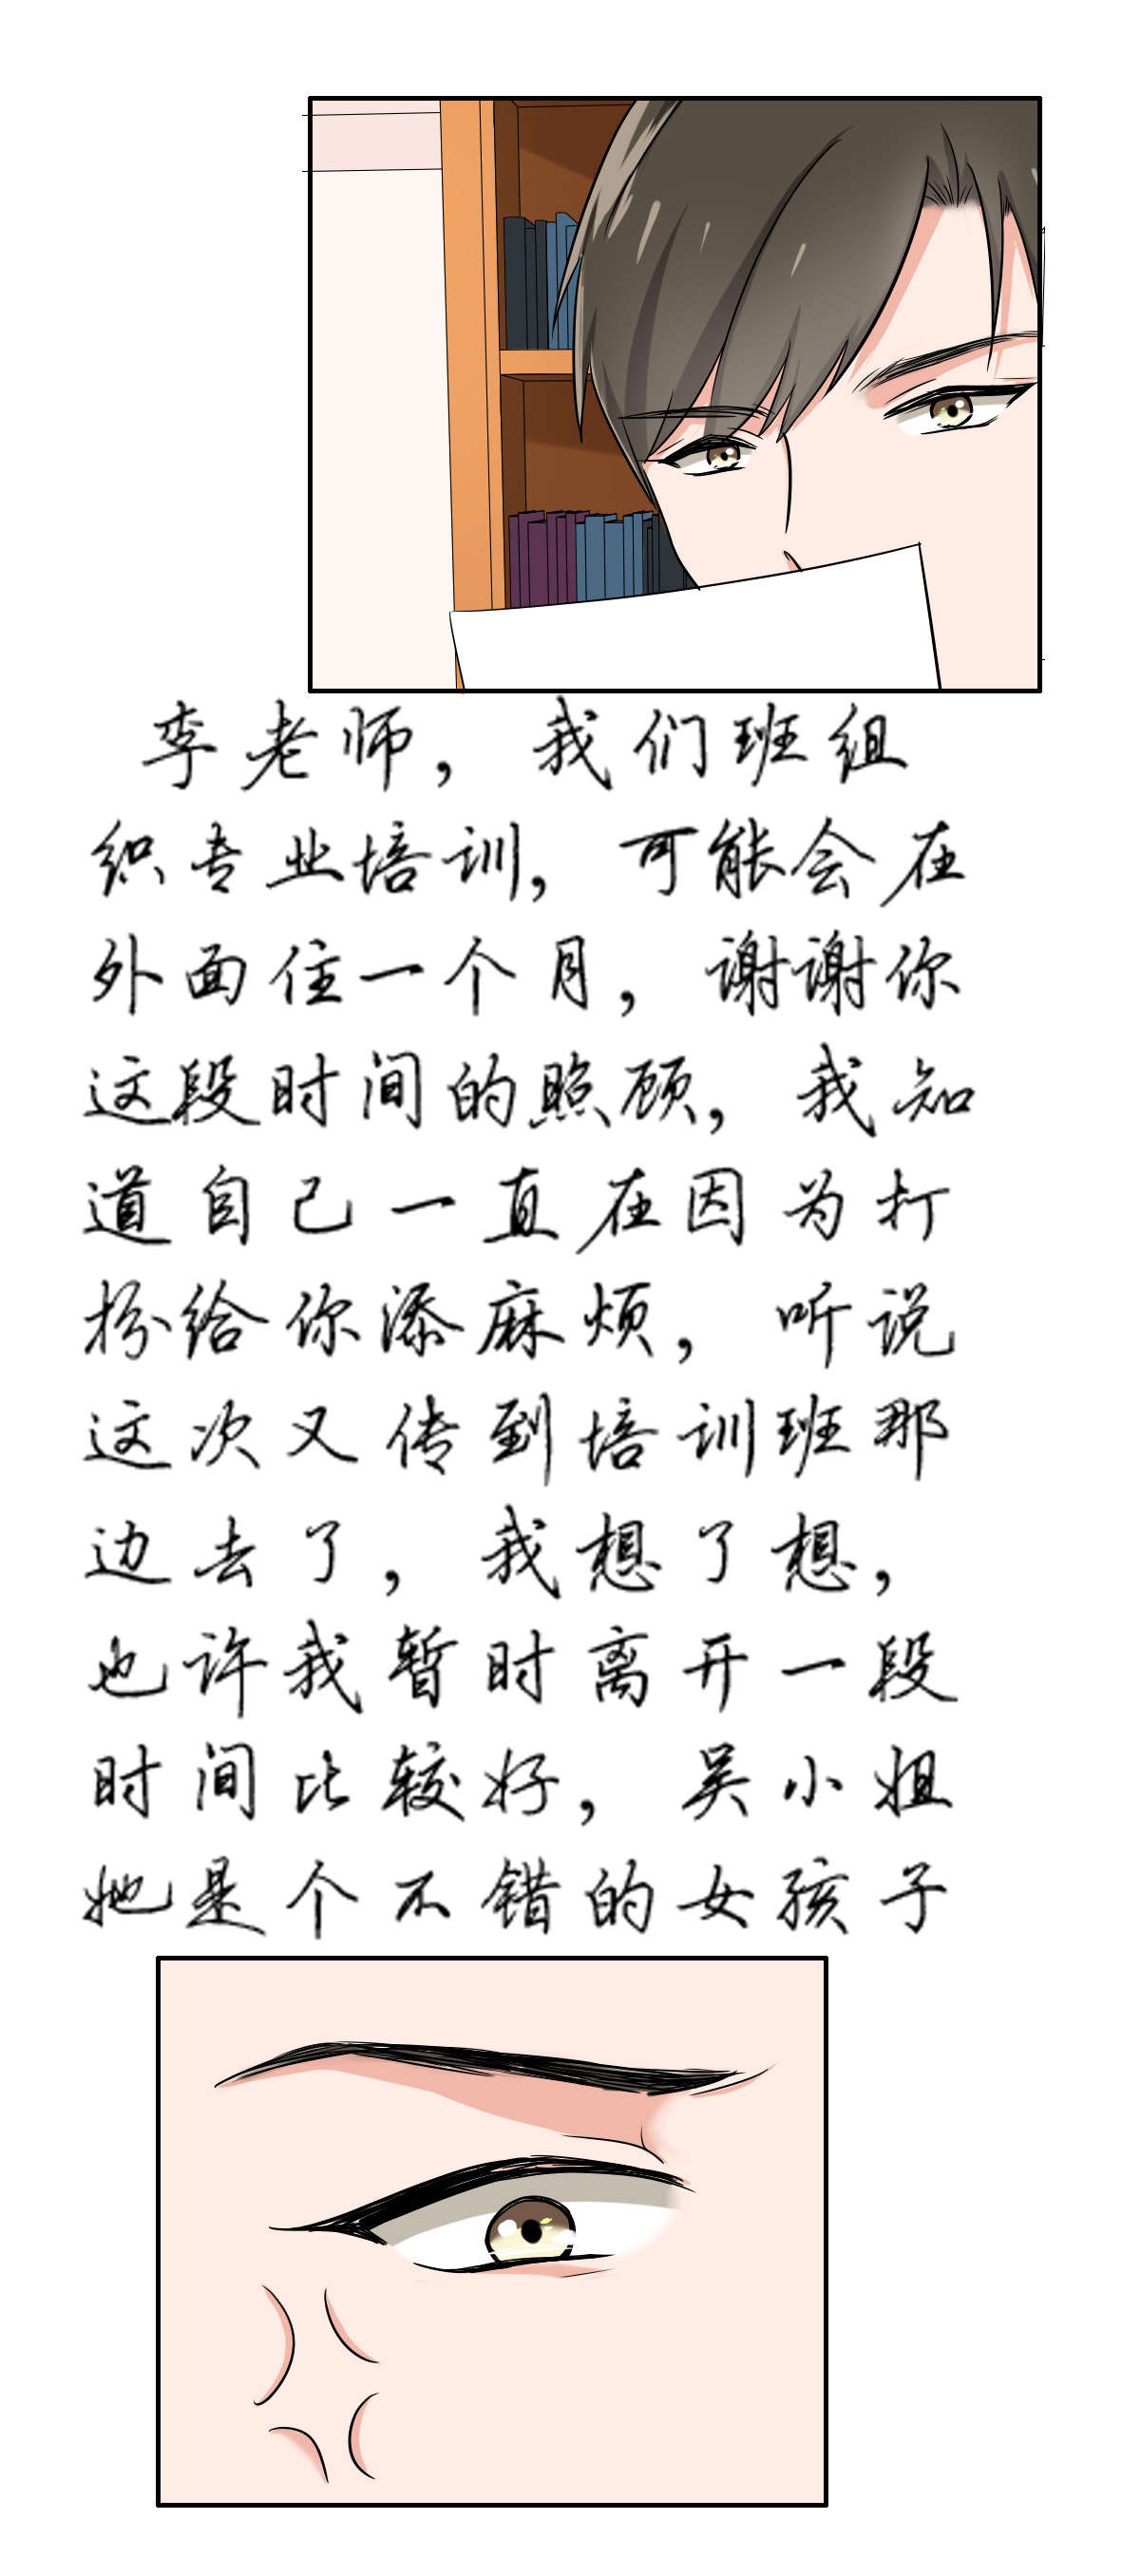 李老师，我们班组
织专业培训，可能会在
外面住一个月，谢谢你
这段时间的照顾，我知
道自己一直在因为打
扮给你添麻烦，听说
这次又传到培训班那
边去了，我想了想，
也许我暂时离开一段
时间比较好，吴小姐
她是个不错的女孩子